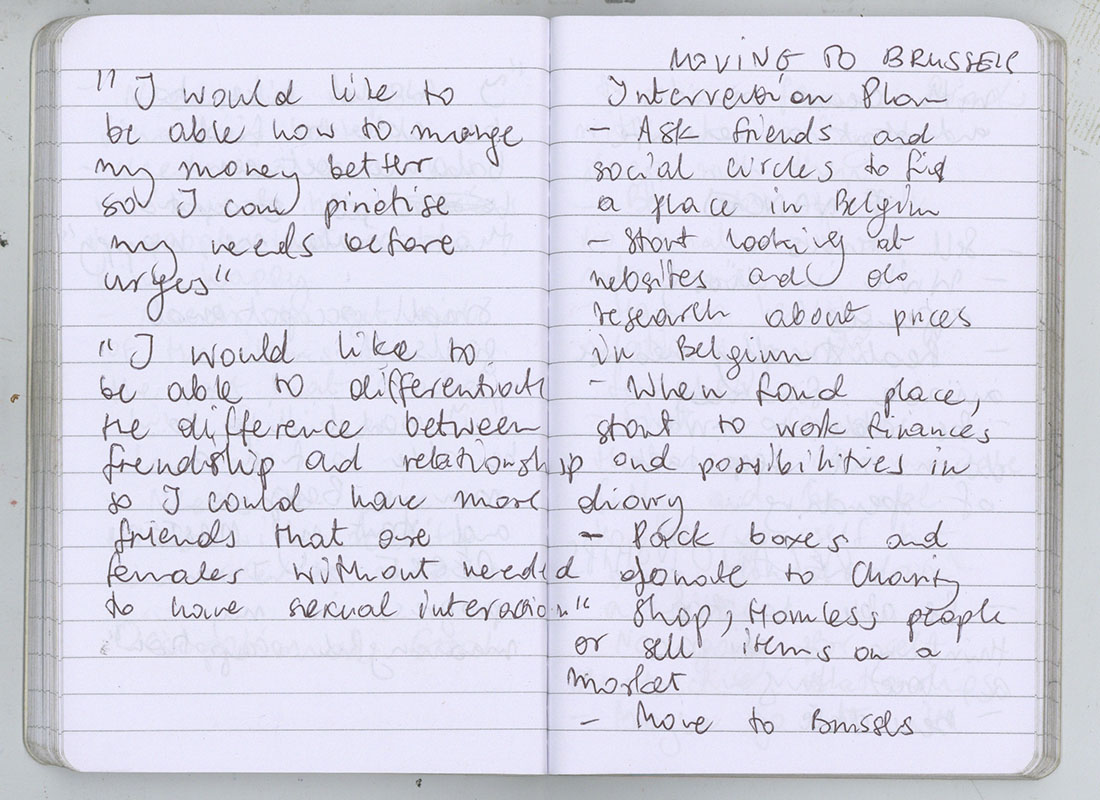 " I would like to
be able how to mange
my money better
so I coud piriotise
my needs before
urges"
" I would like to
be able to differentiate
the difference between
frendship ad relationship
so I could have more
friends that are
females without needed
to have sexual interacion"
MOVING TO BRUSSELS
Intervention Plan
- Ask friends and
social circles to fid
a place in Belgium
- Start looking at
websites and do
research about prices
in Belgium
- When fond place,
start to work finances
and possibilities in
diary
- Pack boxes and
donate to Charity
shop, Homless people
or sell items on a
market
- Move to Brussels